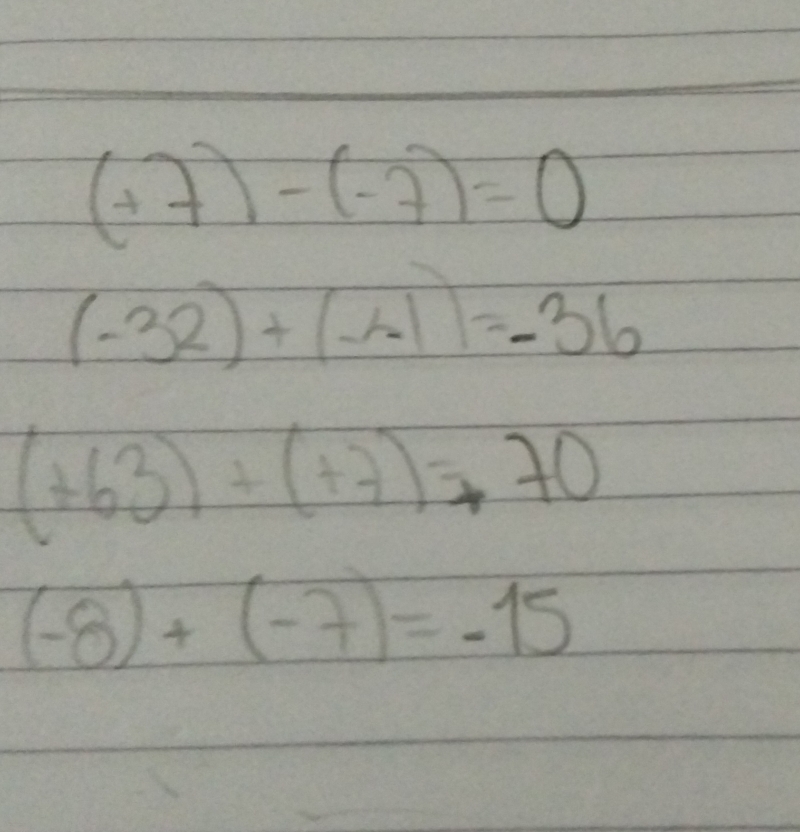 (+7) - (-7) = 0
(-32) + (-4) = -36
(+63) + (+7) = + 70
(-8) + (-7) = -15